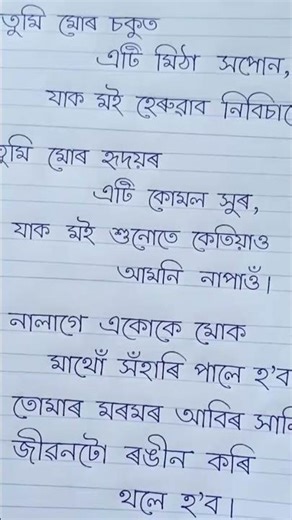 তুমি মোৰ চকুত
এটি মিঠা সপোন,
যাক মই হেৰুৱাব নিবিচাৰো
তুমি মোৰ হৃদয়ৰ
এটি কোমল সুৰ,
যাক মই শুনোতে কেতিয়াও
আমনি নাপাওঁ।
নালাগে একোকে মোক
মাথোঁ সঁহাৰি পালে হ'ব
তোমাৰ মৰমৰ আবিৰ সানি
জীৱনটো ৰঙীন কৰি
থলে হ'ব।